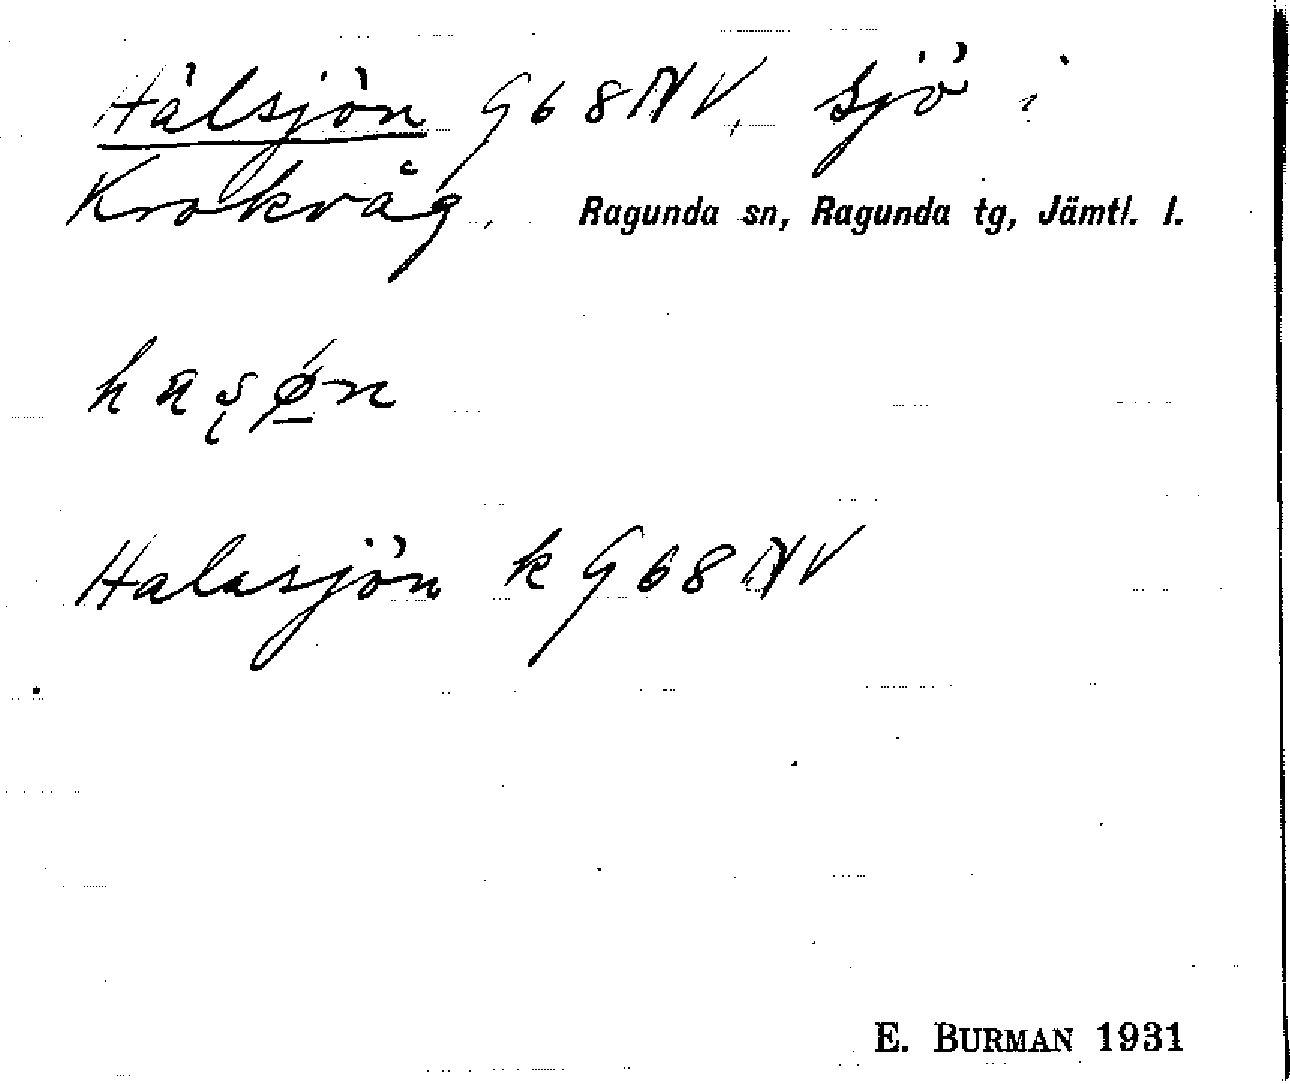 Hälsjön G68NV, sjö i
Krokvåg. Ragunda sn, Ragunda tg, Jämtl. l.
Halasjön k G68NV
E. BURMAN 1931